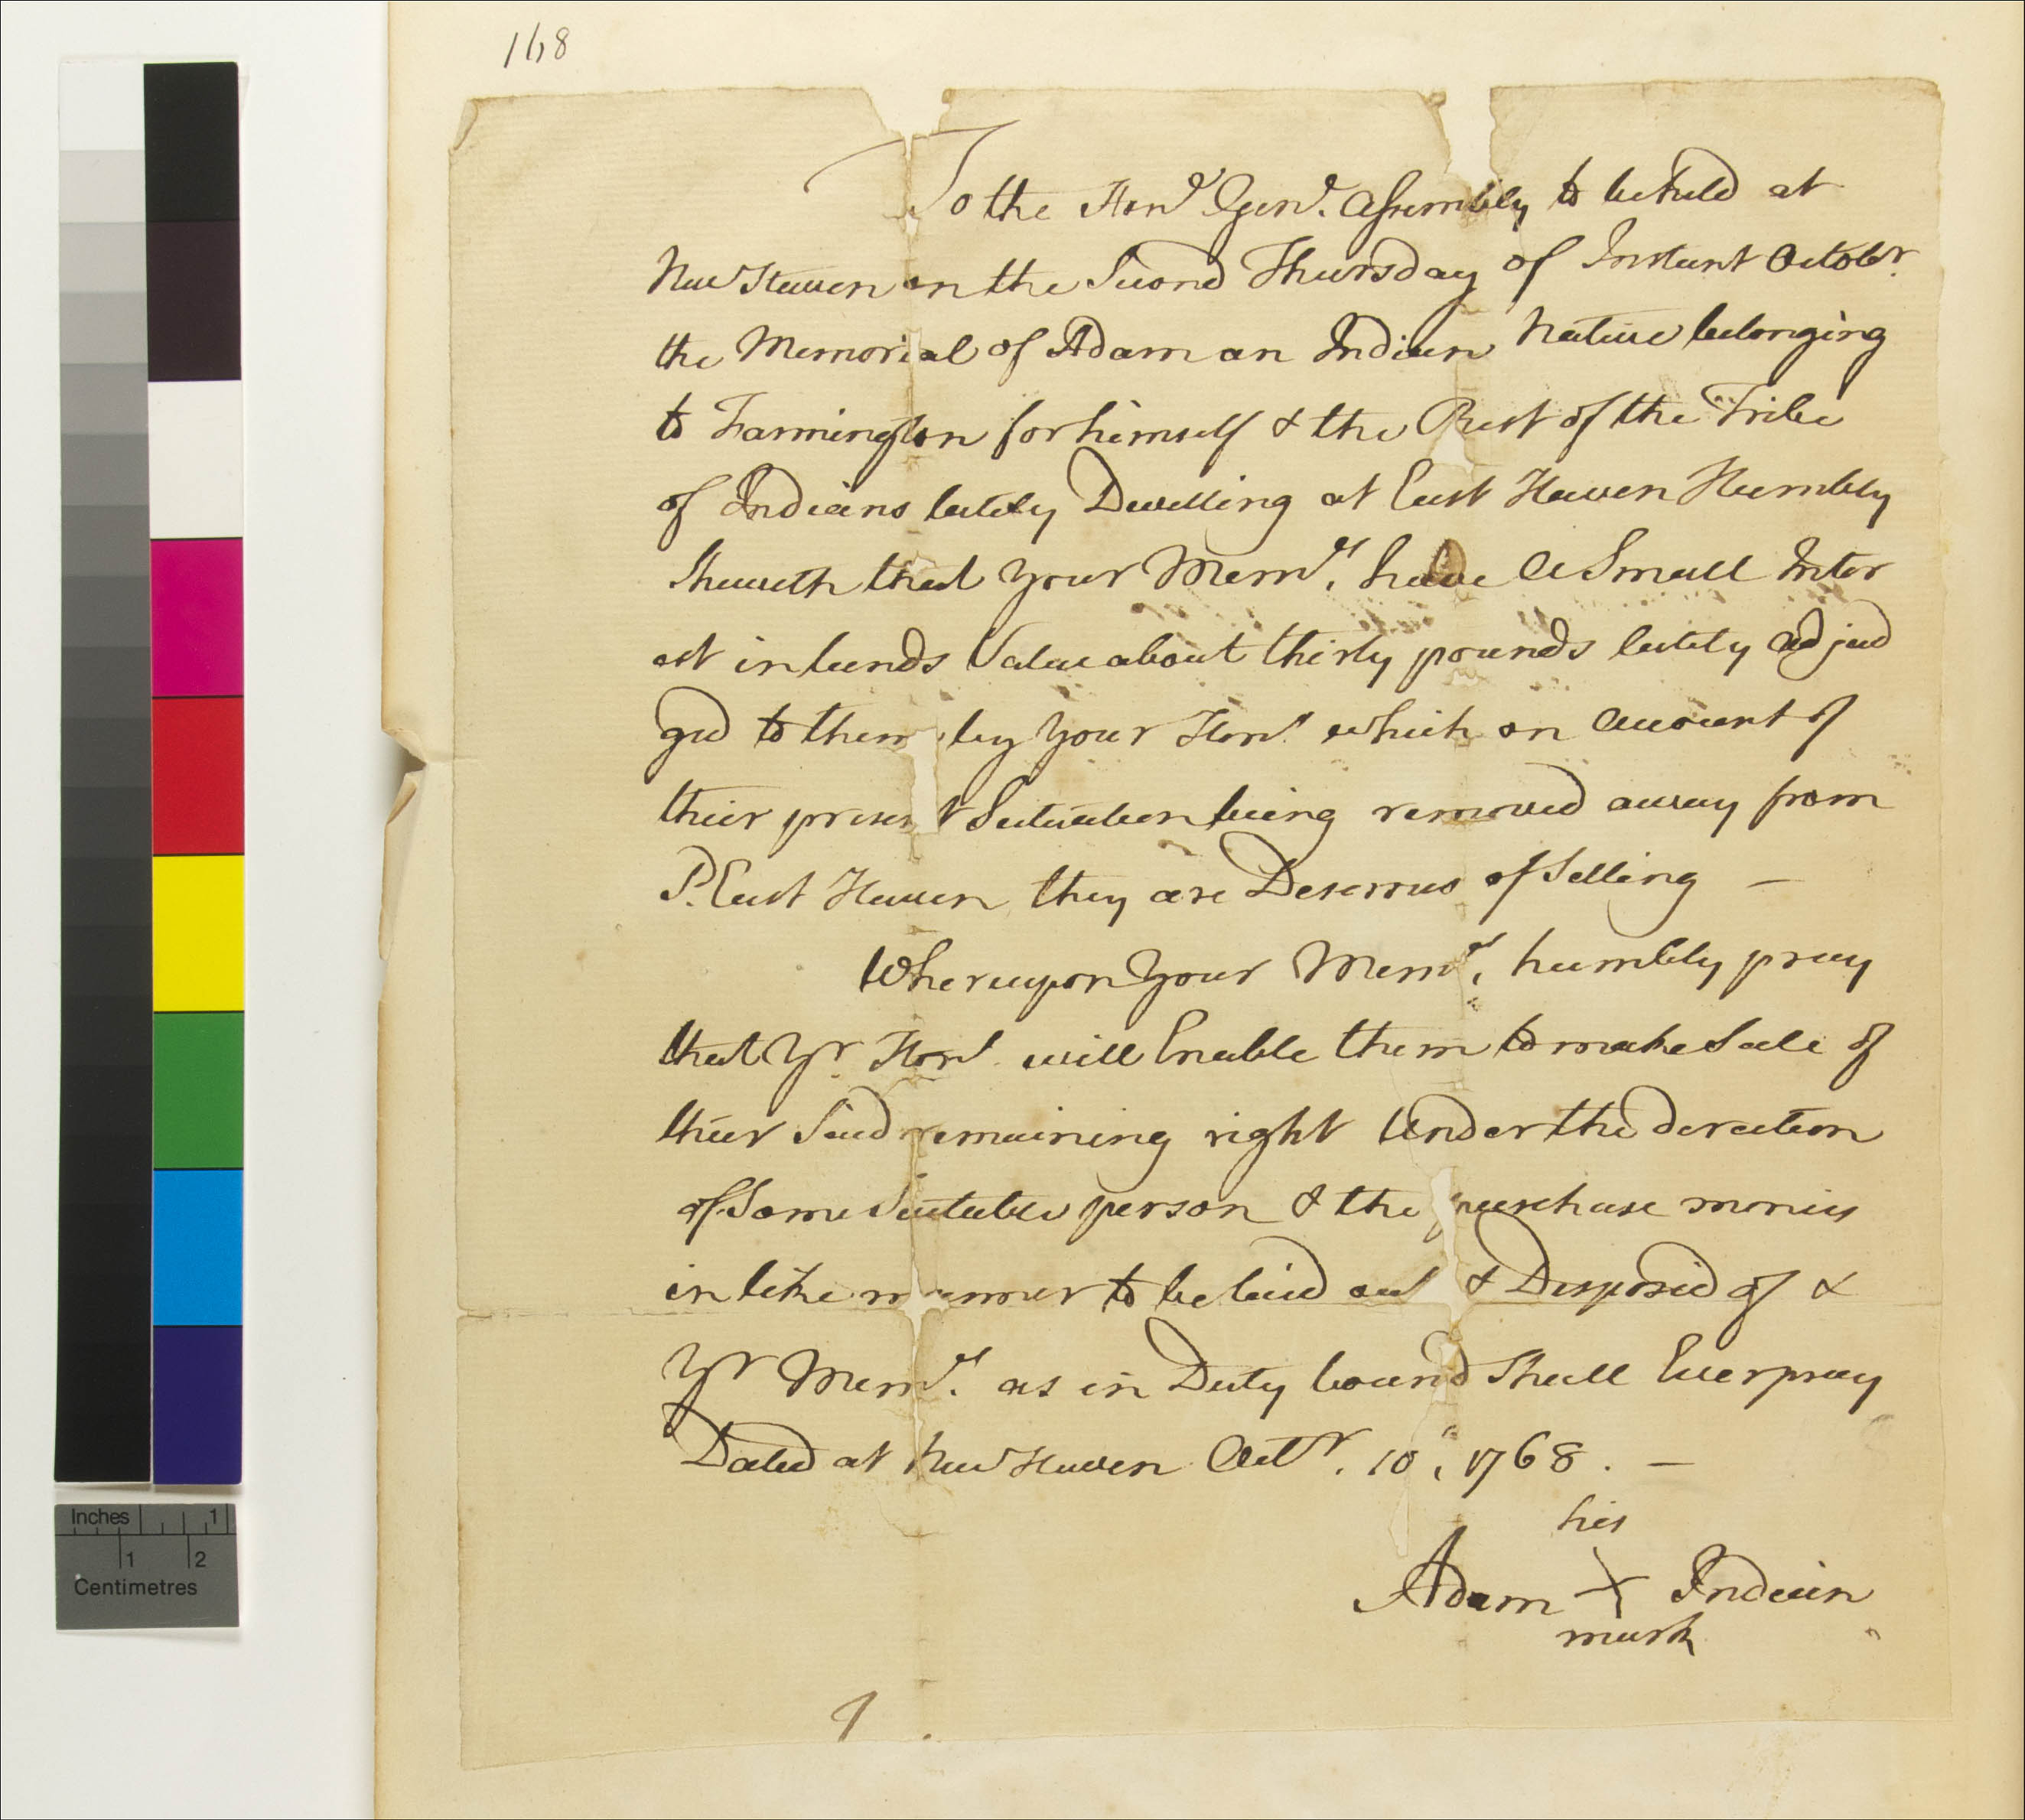 168
To the Honᵈ Genˡ. Assembly to be held at
New Haven on the Second Thursday of Instant Octobʳ.
the Memorial of Adam an Indian Native belonging
to Farmington for himself & the Rest of the Tribe
of Indians lately Dwelling at East Haven Humbly
Sheweth that your Memˢ. have a Small Inter
est in lands Value about thirty pounds lately adjud
ged to them by your Honˢ which on account of
their present Situation being removed away from
Sᵈ. East Haven they are Deserous of Selling —
Whereupon your Memˢ. humbly pray
that Yʳ. Honˢ will Enable them to make Sale of
their Said remaining right Under the derection
of Some Suitable person & the purchase monies
in like manner to be laid out & Disposed of &
Yʳ Memˢ. as in Duty bound Shall Ever pray
Dated at New Haven Octʳ. 10, 1768. —
his
Adam X Indian
mark